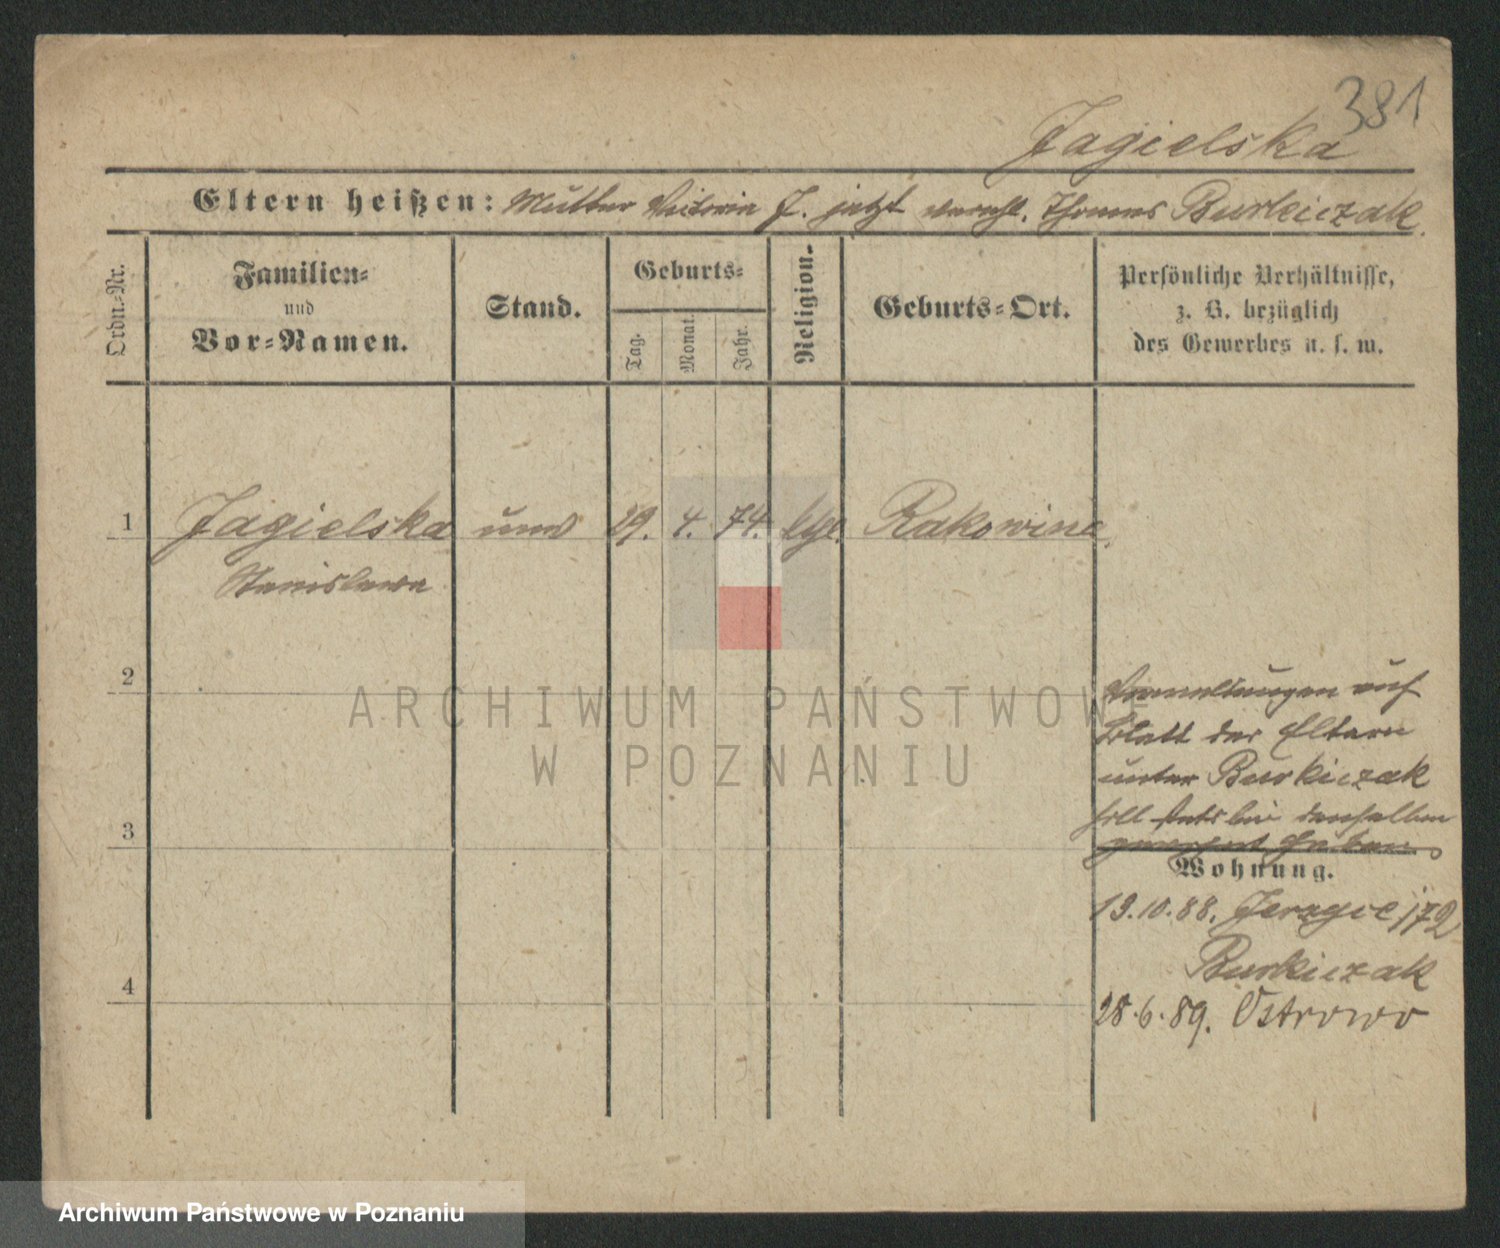 381
Jagielska
Eltern heißen: Mutter Victoria J. jetzt vereht. Thomas Burkiczak.
Ordn.-Nr.
Familien-
und
Vor-Namen.
Stand.
Geburts-
Tag.
Monat.
Jahr.
Religion.
Geburts-Ort.
Persönliche Verhältnisse,
z. B. bezüglich
des Gewerbes u. s. w.
1 Jagielska unv 29. 4. 74. kth. Rakowinie
Stanislawa
2
auf
Blatt der Eltern
unter Burkiczak
soll stets bei denselben
gewohnt haben
3
Wohnung.
19.10.88. Jerzyce 172
Burkiczak
4
28.6.89. Ostrowo
ARCHIWUM PAŃSTWOWE
W POZNANIU
Archiwum Państwowe w Poznaniu